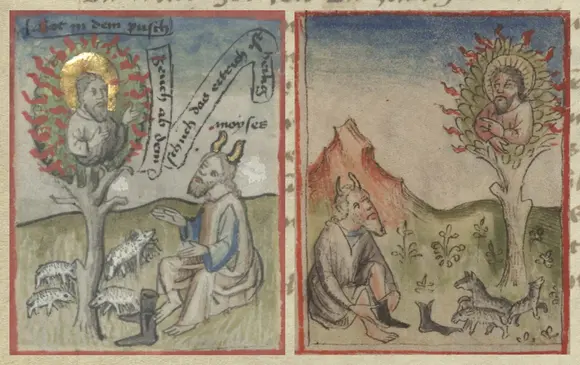 got in dem pusch
zeuch ab dein
schuch das ertrich
ist heilig
moyses